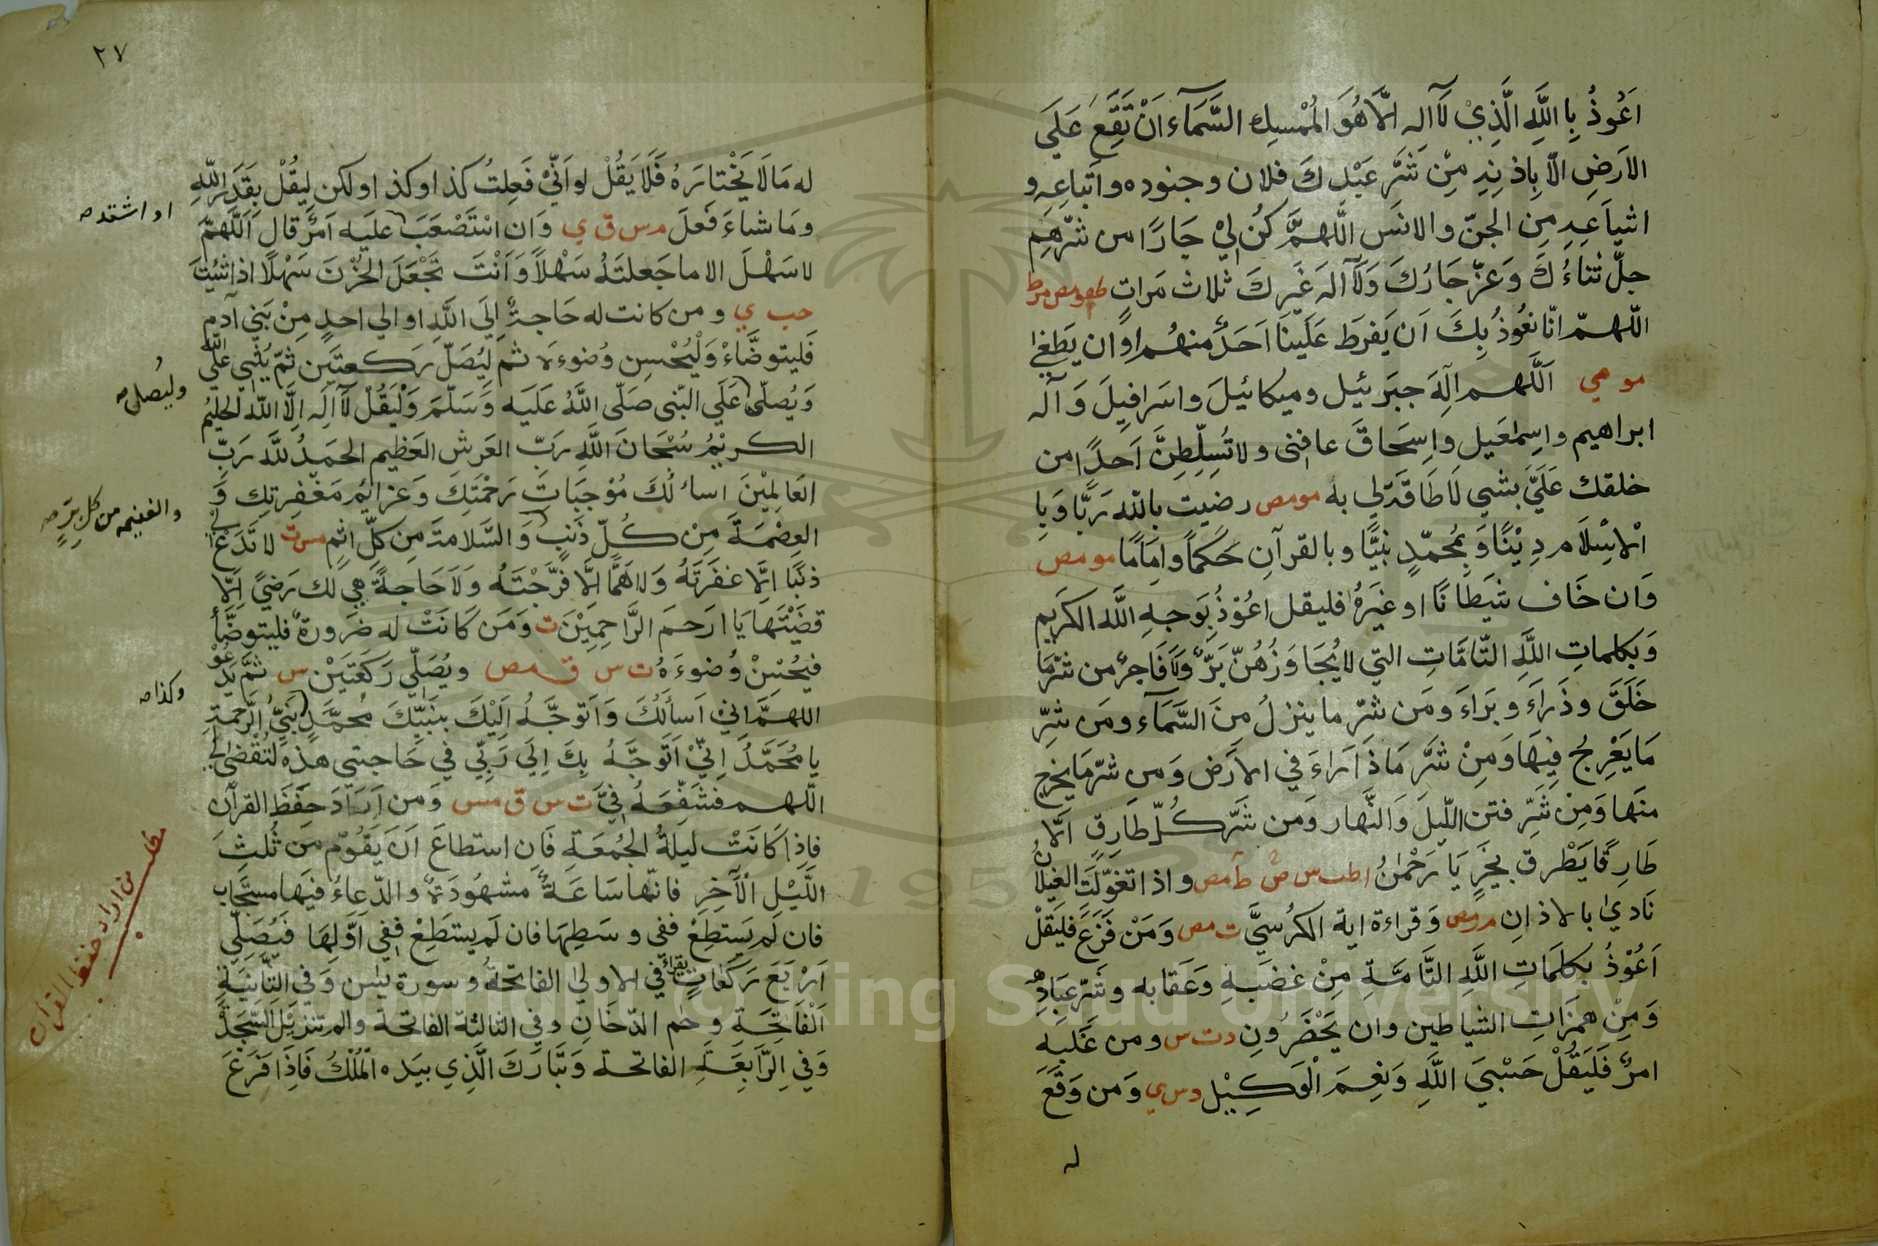 اَعُوذُ بِاللَّهِ الَّذِيْ لَآ اله الَّا هُوَ الْمُمْسِك السَّمَآء اَنْ تَقَعَ عَلَي
الارَضِ الّا بِاِذنِهِ مِنْ شَرِّ عَبْدِكَ فلان وجنوده واَتباعِهِ و
اشياَعِهِ مِنَ الجنّ والانسَ اللَّهمَّ كُن لِيْ جَارًا من شرّهِم
جلَّ ثناءُكَ وَعَزّ جَارُكَ وَلَآ اله غَيرِكَ ثلاث مَراتٍ ط مومص مر ط
اللّهمّ انّا نعُوذُ بِكَ اَن يَفرَط عَلَينَا اَحَدٌ منهُم اَو ان يَطغيٰ
مو مي اَللَّهم اِلَهَ جبَرئيل وميكائيلَ واسَرافيلَ وَآله
ابراهيم واسِمٰعَيل واِسحَاقَ عافنى ولا تُسِلّطِنَّ اَحَدًا من
خلقك عَلَيَّ بشي لاَ طَاقَةَ لي به مومص رضيت بالله رَبًّا وَبِا
لْاِسْلَام دِيْنًا وَبمُحمّدٍ نبيًّا وبالقرآنِ حَكَماً واِمَامًا مومص
وَان خَاف شيَطَانًا او غيَرهُ فليقل اعُوْذُ بوَجهِ اللَّه الكَريمِ
وَبكلماتِ اللَّهِ التّامَّاتِ التي لا يُجَاوَزُهُنّ بَرٌّ وَلَا فَاجرٌ من شرّ مَا
خَلَقَ وذَراَءَ وبَراءَ ومَن شَرّ ما ينزلُ مِنَ السَّمَآء ومَن شرِّ
مَا يَعْرِجُ فِيهَا وَمِنْ شَرَّ مَا ذَرَاءَ في الارَض وَمن شرّ مَا يخرج
منهَا وَمِنْ شَرِّ فتن اللّيلَ وَالنَّهار وَمن شَرَّ كُلّ طَارِقٍ الَّا
طَارِقًا يَطْرق بخَرٍ يَا رَحْمٰنُ اطب س ص ط آمص واذا تغوّلَت الغيلانُ
نَاديٰ بالاذانِ م ر مص وَقراءة اية الكرُسيَّ ت مص وَمَنْ فَزَعَ فليَقلْ
اَعُوْذُ بكلَمَاتِ اللَّهِ التَّامَّةِ مِنْ غضبهِ وَعَقابه وشَرّ عبَادِهِ
وَمِنْ همَزَاتِ الشياطين وان يَحْضَرُونِ د ت س ومن غَلَبهِ
امرٌ فَليَقُلْ حَسْبيَ اللَّهِ وَنِعمَ الْوَكِيْل د س ي وَمن وَقعَ
له
٢٧
له مَا لَا يَخْتارَهُ فَلَا يَقُلْ لو اَنِّيْ فَعِلتُ كذا وكذ اولكن لِيقُلْ بقَدَرِ اللهِ
ومَا شاءَ فَعَلَ م س ق ي وَان اسْتَصْعَبَ عليَه اَمرٌ قالَ اَللَّهمّ
لا سَهْلَ الا ما جَعلتَهُ سَهْلاً وَاَنْتَ تجْعَلَ الحُزْنَ سَهْلًا اذا شئتَ
حب ي ومن كانت له حَاجةٌ اِلَي اللَّهِ او الي احدٍ مِنْ بَني آدَمَ
فَليتوضَّاءْ وَلْيُحْسِن وُضوءَه ثم ليُصَلّ رَكعتَين ثمّ يُثني علَي اللّٰه
وَيُصلّى عَلَي النّبى صَلّى اللَّهُ عَلَيَه وَسَلّمَ وَلْيَقُلْ لَآ اَلِه اِلَّا اللّٰه الحَليُم
الكريْمُ سُبْحَانَ اللَّهِ رَبِّ العَرشِ العَظيمِ الحَمدُ للَّهِ رَبِّ
العَالمِيْنَ اساُلكَ مُوْجبَاتِ رَحْمَتِكَ وَعَزائمُ مَغْفِرتِك وَ
العِصْمَةَ مِنْ كُلّ ذَنبٍ وَالسَّلامةَ مِن كِلّ اثمٍ مس ت لا تَدَعْ لي
ذنَبًا اِلَّا غفَرتَهُ وَلا هَمًّا اِلَّا فرَّجْتَهُ وَلَا حَاجةً هِي لك رَضيً اِلَّا
قضيَتَها يَا ارَحَمَ الرَّاحِميِنَ ت وَمَن كَانَتْ له ضَرورة فليتوضَّأ
فيحُسِنْ وُضوءَهُ ت س ق مص ويُصَلّي رَكعَتَيَنْ س ثمَّ يَدعُوْ
اللهمَّ اني اَسأَلُكَ وَاَتوجَّهُ اِلَيْكَ بنبيِّكَ مُحمَّدٍ نَبيُّ الرَّحمةِ
يا مُحَمَّدُ اِنّيْ اَتوَجَّهُ بِكَ اِلَي رَبيِّ في حَاجتي هذِه لتُقضى لي
اللّهم فشَفِّعهُ فيَّ ت س ق مس وَمن اَرَادَ حفَظَ القرآن
فاِذا كَانَتْ ليلةُ الجُمعَةِ فَانِ استطاعَ اَنَ يَقُوّمَ من ثُلثِ
اللَّيْلِ الْآخِرِ فانّها سَاعَةٌ مشهُودَةٌ والدّعاءُ فيهَا مستجَاب
فان لَم يَستِطعْ ففى وسَطهَا فان لَم يستَطِعْ ففِي اَوّلِهَا فَيُصَلِّي
اَرْبعَ رَكعَاتٍ يقراء في الاولي الفاتحةُ وسورة يسَٰن وَفي الثَّانيَةِ
اَلْفاتحَةِ وحٰم الدّخَان وفي الثالثة الفاتحة والم تنزيَل السّجَدة
وَفي الرّابِعَةِ الفاتحة وتَبَارَكَ الَّذِي بيَده الْمُلْكُ فَاِذَا فرغَ
او اشتد صه
وليُصلّ صه
والغنيمه من كل برّ صه
وكذا صه
طلب من اراد حفظ القرآن